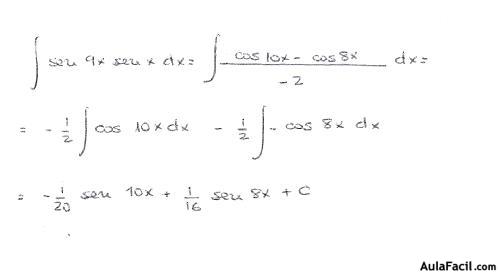 ∫ sen 9x sen x dx = ∫ (cos 10x - cos 8x)/(-2) dx =
= - 1/2 ∫ cos 10x dx - 1/2 ∫ - cos 8x dx
= - 1/20 sen 10x + 1/16 sen 8x + C
AulaFacil.com